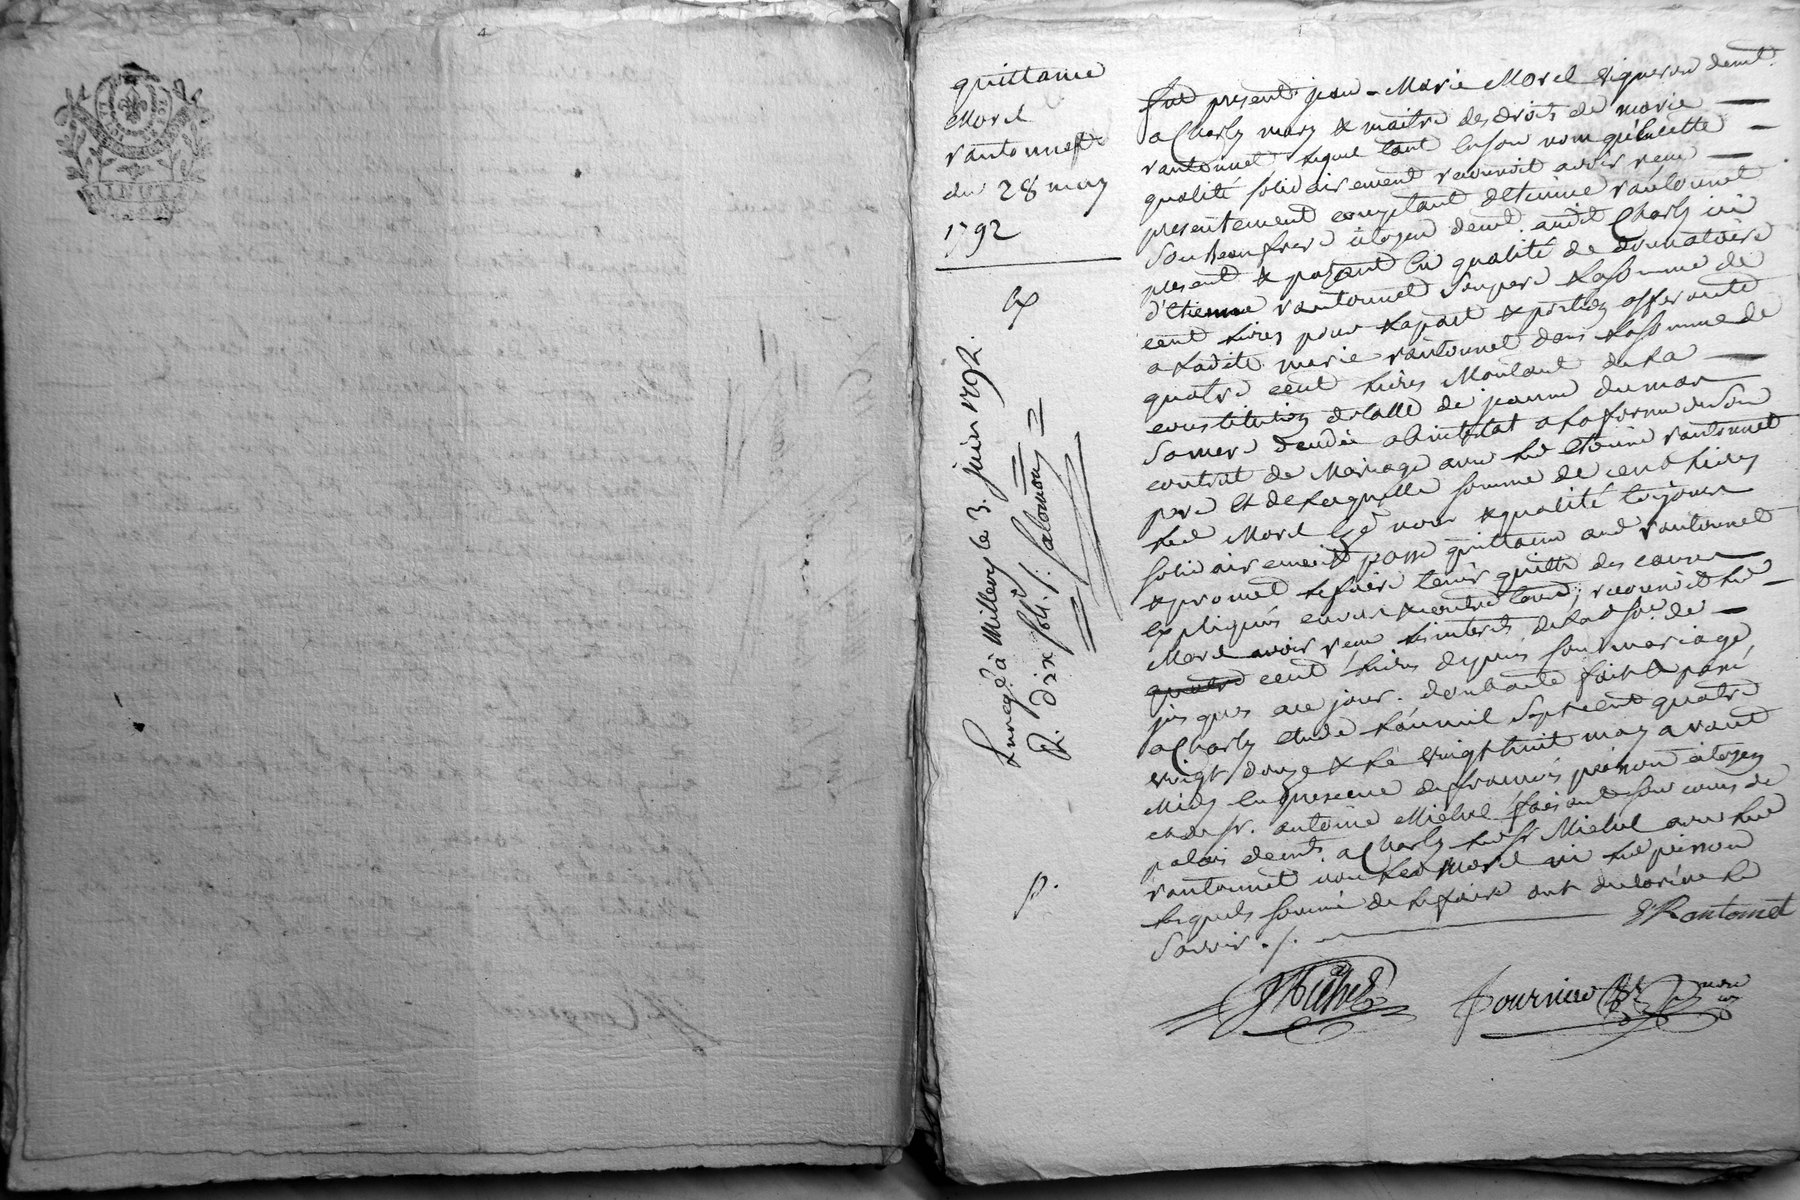 4
LA LOI LE ROI
quittance
Morel
rantonnet
du 28 may
1792
Enregé à Millery le 3. juin 1792.
R. dix sols. Salomon
Fut present jean-Marie Morel vigneron demt.
a Charly mary & maitre des droits de marie
rantonnet lequel tant en son nom qu'en cette
qualité solidairement reconnoit avoir reçu
presentement comptant d'etienne rantonnet
son beaufrere citoyen demt. audit Charly ici
present & payant en qualité de donnataire
d'etienne rantonnet son pere la somme de
cent livres pour la part & portion afferante
a ladite marie rantonnet dans la somme de
quatre cent livres Montant de la
constitution dotalle de jeanne dumas
sa mere decedée abintestat a la forme de son
contrat de Mariage avec led etienne rantonnet
pere et de laquelle somme de cent livres
led Morel es noms & qualité toujours
solidairement passe quittance aud rantonnet
& promet le faire tenir quitte des causes
expliquées envers & contre tous; reconnoit led
Morel avoir reçu les interets de lad. so. de
quatre cent livres depuis son mariage
jusques a ce jour. dont acte fait & passé
a Charly etude l'an mil sept cent quatre
vingt douze & le vingt huit may avant
Midy en presence de francois peisson citoyen
et de sr. antoine Michel faisant son cours de
palais demts. a Charly led sr Michel avec led
rantonnet non led Morel ni led peisson
lesquels sommé de le faire ont declaré ne le
savoir ./.
E Rantonnet
AMichel
fournier